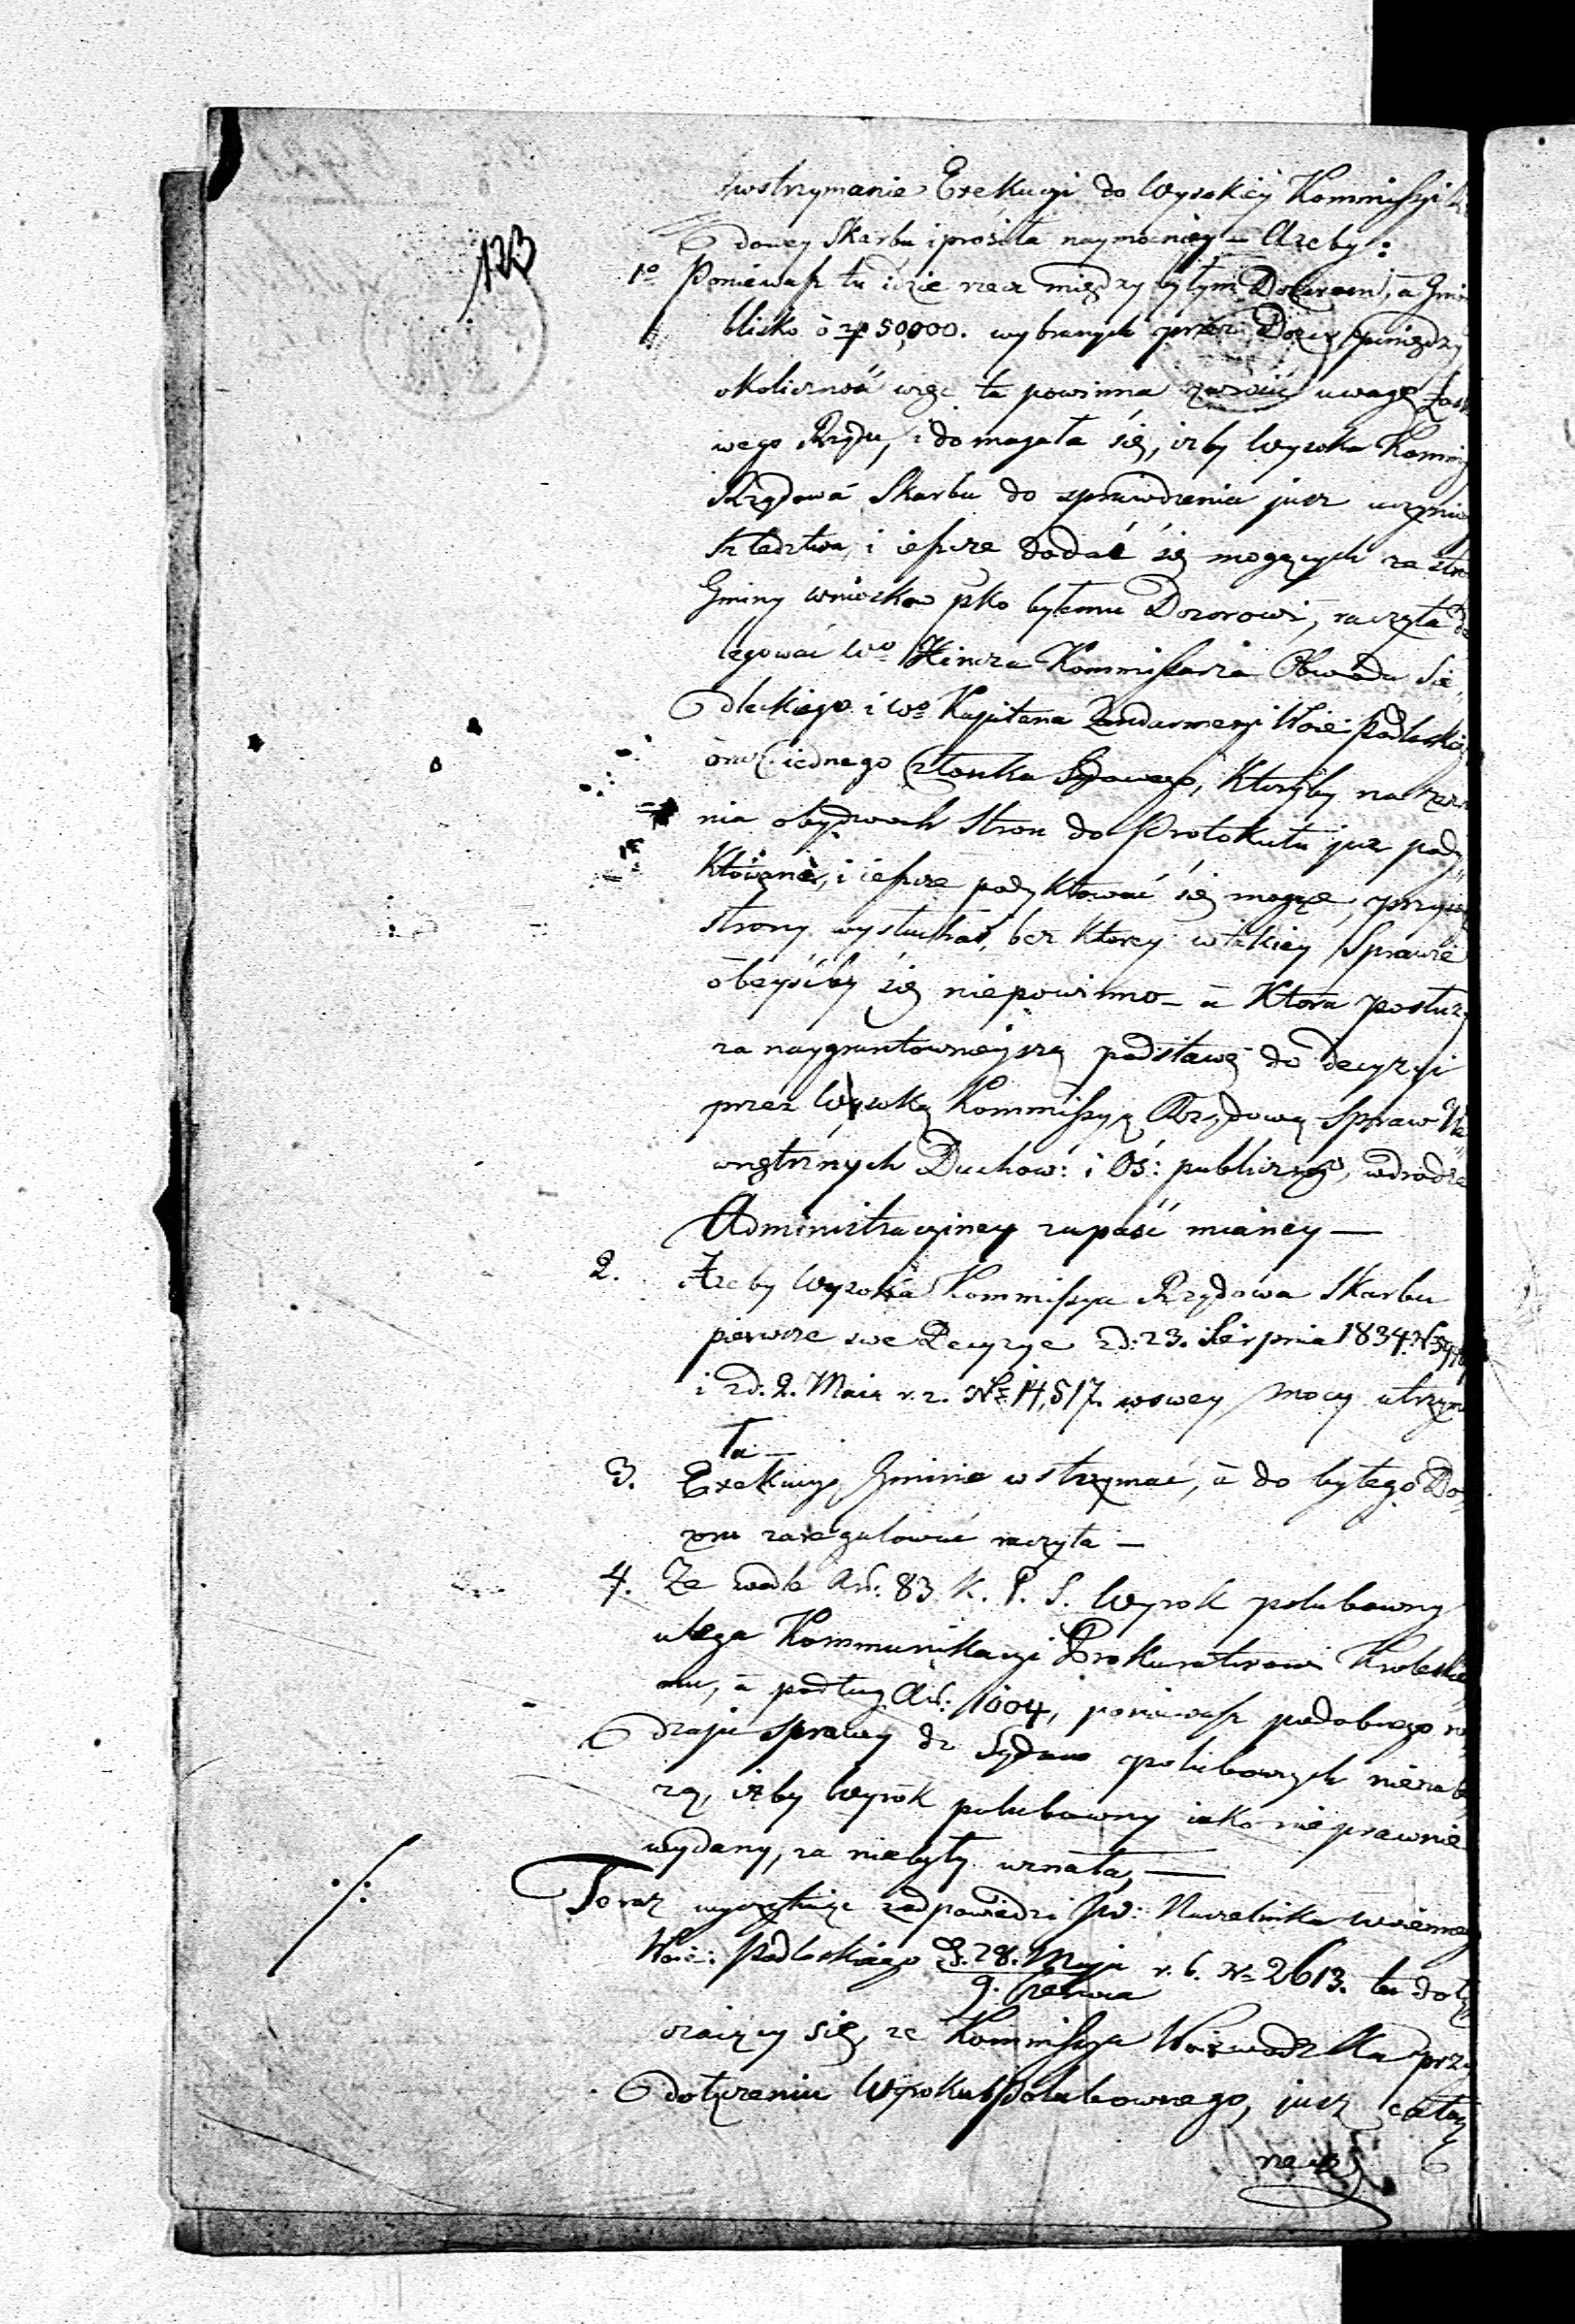 123
wstrzymanie Exekucyi do Wysokiey Kommissyi
dowey Skarbu i prosiła naymocniey – Ażeby:
1o Poniewasz tu idzie rzecz między byłym Dozorem, a Gmi
blisko o zł 50,000. wybranych przez Dozór pieniędzy
okoliczność więc ta powinna zwrócić uwagę
wego Rządu, i domagała się, iżby Wysoka Kommi
Rządowa Skarbu do sprawdzenia jusz uczynio
szledztwa, i ieszcze dodać się mogących ze stro
Gminy wniosków pko byłemu Dozorowi, raczyła de
legować Wo Hincza Kommissarza Obwodu Sie
dleckiego i Wo Kapitana Żandarmeryi Woie: Podlaskie
oraz iednego Członka Sądowego, któryby na
nia obydwóch Stron do Protokułu już pody
ktowane, i ieszcze podyktować się mogące, przysię
strony wysłuchał, bez ktorey wtakiey Sprawie
obeyśćby się niepowinno – a która posłuży
za naygruntownieyszą podstawę do decyzyi
przez Wysoką Kommissyą Rządową Spraw We
wnętrznych Duchow: i Oś: publicznego, wdrodze
Administracyiney zapaść maiącey —
2. Ażeby Wysoka Kommissya Rządowa Skarbu
pierwsze swe Decyzye zd: 23. Sierpnia 1834. No
i zd. 2. Maia r. z. No 14,517. wswey mocy utrzyma
ła —
3. Exekucyę Gminie wstrzymać, a do byłego Do
zoru zaregulować raczyła —
4. Że wedle Art: 83 K. P. S. Wyrok polubowny
ulega Kommunikacyi Prokuratorowi Krolewskie
mu, a podług Art: 1004, poniewasz podobnego ro
dzaju sprawy do Sądów polubownych nienale
żą, iżby Wyrok polubowny iako nieprawnie
wydany, za niebyły uznała, —
./: Teraz wyczytuiąc zodpowiedzi JW: Naczelnika woiennego
Woie: Podlaskiego d. 28. Maja r. b. No 2613. tu doty
9. Czerwca
czaiący się, że Kommissya Woiewodzka przy
dołączeniu Wyroku Polubownego, jusz całą
rzecz